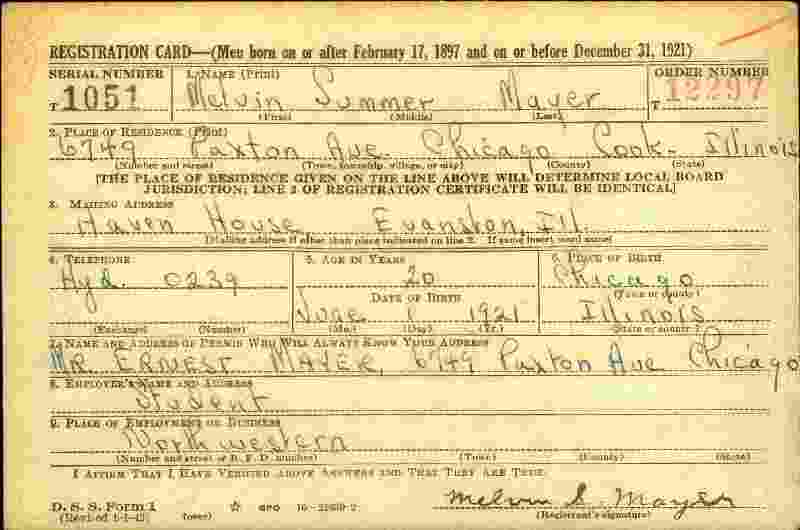 REGISTRATION CARD—(Men born on or after February 17, 1897 and on or before December 31, 1921)
SERIAL NUMBER 1. NAME (Print) ORDER NUMBER
T 1051 Melvin Summer Mayer T 12297
(First) (Middle) (Last)
2. PLACE OF RESIDENCE (Print)
6749 Paxton Ave. Chicago Cook- Illinois
(Number and street) (Town, township, village, or city) (County) (State)
[THE PLACE OF RESIDENCE GIVEN ON THE LINE ABOVE WILL DETERMINE LOCAL BOARD
JURISDICTION; LINE 2 OF REGISTRATION CERTIFICATE WILL BE IDENTICAL]
3. MAILING ADDRESS
Haven House Evanston, Ill.
[Mailing address if other than place indicated on line 2. If same insert word same]
4. TELEPHONE 5. AGE IN YEARS 6. PLACE OF BIRTH
Hyd. 0239 20 Chicago
DATE OF BIRTH (Town or county)
June 1 1921 Illinois
(Exchange) (Number) (Mo.) (Day) (Yr.) (State or country)
7. NAME AND ADDRESS OF PERSON WHO WILL ALWAYS KNOW YOUR ADDRESS
MR. ERNEST MAYER, 6749 Paxton Ave Chicago
8. EMPLOYER'S NAME AND ADDRESS
Student
9. PLACE OF EMPLOYMENT OR BUSINESS
Northwestern
(Number and street or R. F. D. number) (Town) (County) (State)
I AFFIRM THAT I HAVE VERIFIED ABOVE ANSWERS AND THAT THEY ARE TRUE.
D. S. S. Form 1 GPO Melvin S. Mayer
(Revised (over) (Registrant's signature)